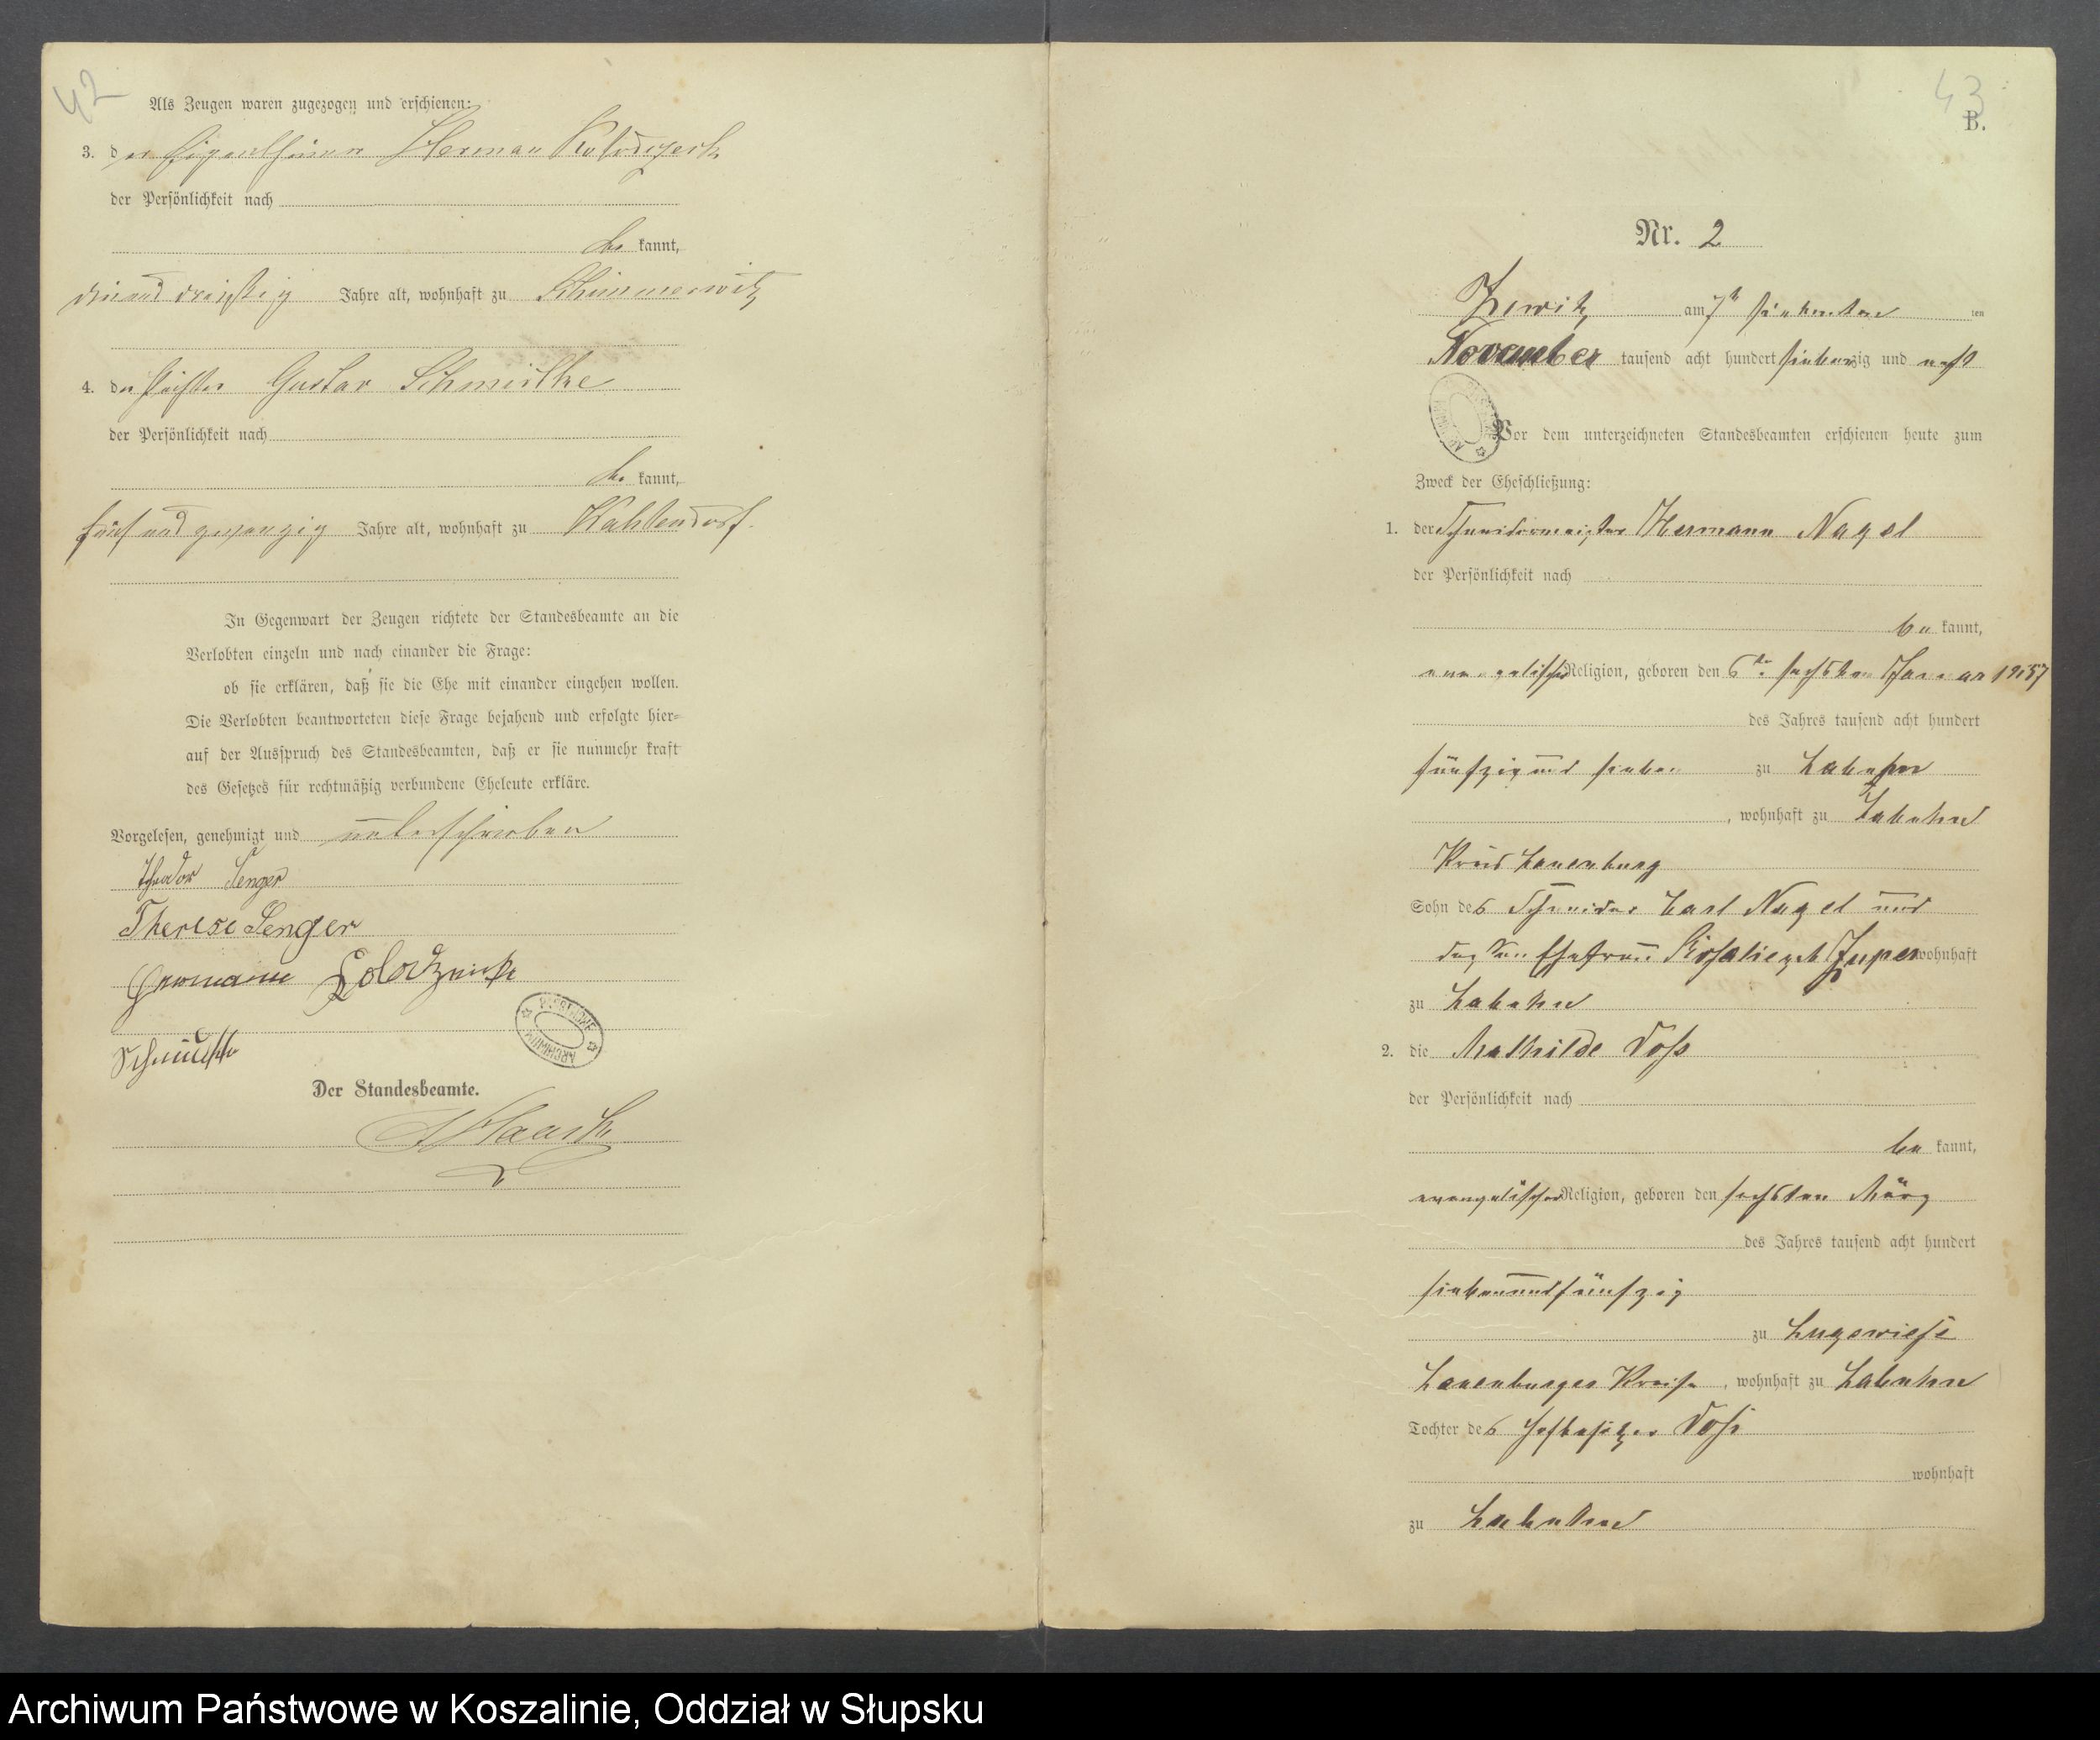 42
Als Zeugen waren zugezogen und erschienen:
3. der Eigenthümer Herman
der Persönlichkeit nach
be kannt,
dreiund dreißig Jahre alt, wohnhaft zu Schimmerwitz
4. der Gustav Schmidtke
der Persönlichkeit nach
be kannt,
fünf und zwanzig Jahre alt, wohnhaft zu
In Gegenwart der Zeugen richtete der Standesbeamte an die
Verlobten einzeln und nach einander die Frage:
ob sie erklären, daß sie die Ehe mit einander eingehen wollen.
Die Verlobten beantworteten diese Frage bejahend und erfolgte hier-
auf der Ausspruch des Standesbeamten, daß er sie nunmehr kraft
des Gesetzes für rechtmäßig verbundene Eheleute erkläre.
Vorgelesen, genehmigt und unterschrieben
Theodor Senger
Therese Senger
Hermann
Schmidtke
ARCHIWUM
Der Standesbeamte.
43
B.
Nr. 2
Zewitz am 7ten siebenten ten
November tausend acht hundert siebenzig und acht
Vor dem unterzeichneten Standesbeamten erschienen heute zum
Zweck der Eheschließung:
1. der Schneidermeister Hermann Nagel
der Persönlichkeit nach
be kannt,
evangelischer Religion, geboren den 6ten sechsten Januar 1857
des Jahres tausend acht hundert
fünfzig und sieben zu Labehn
, wohnhaft zu Labehn
Kreis Lauenburg
Sohn des Schneider Carl Nagel und
dessen Ehefrau Rosalie geb wohnhaft
zu Labehn
2. die Mathilde Voß
der Persönlichkeit nach
be kannt,
evangelischer Religion, geboren den sechsten März
des Jahres tausend acht hundert
siebenundfünfzig
zu Lugewiese
Lauenburger Kreise, wohnhaft zu Labehn
Tochter des Hofbesitzer Voß
wohnhaft
zu Labehn
Archiwum Państwowe w Koszalinie, Oddział w Słupsku